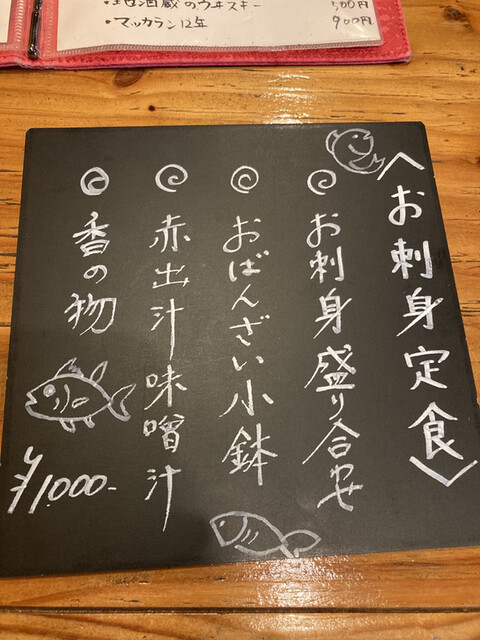 ・地酒蔵のウヰスキー
・マッカラン12年 900円
〈お刺身定食〉
お刺身盛り合わせ
おばんざい小鉢
赤出汁味噌汁
香の物
¥1,000-